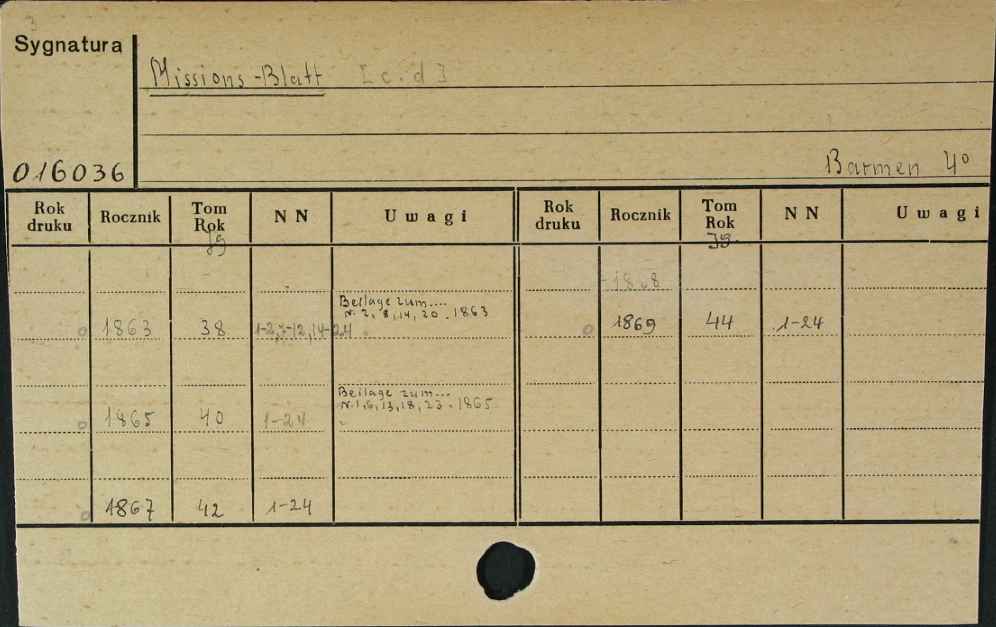 3
Sygnatura
Missions-Blatt [c.d]
016036
Barmen 4°
Rok druku Rocznik Tom Rok NN Uwagi Rok druku Rocznik Tom Rok NN Uwagi
Beilage zum....
N. 2, 8, 14, 20. 1863
o 1863 38 1-2, 14-24 o 1869 44 1-24
Beilage zum...
N. 1, 6, 13, 18, 23. 1865
o 1865 40 1-24
o 1867 42 1-24